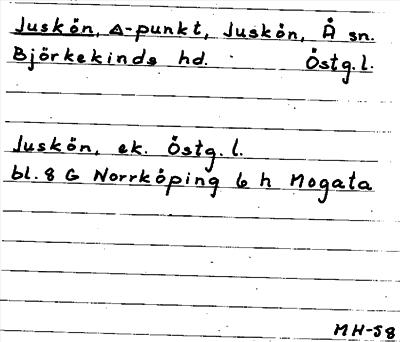 Juskön, Δ-punkt, Juskön, Å sn.
Björkekinds hd. Östg.l.
Juskön, ek. Östg.l.
bl. 8 G Norrköping 6 h Mogata
MH-58